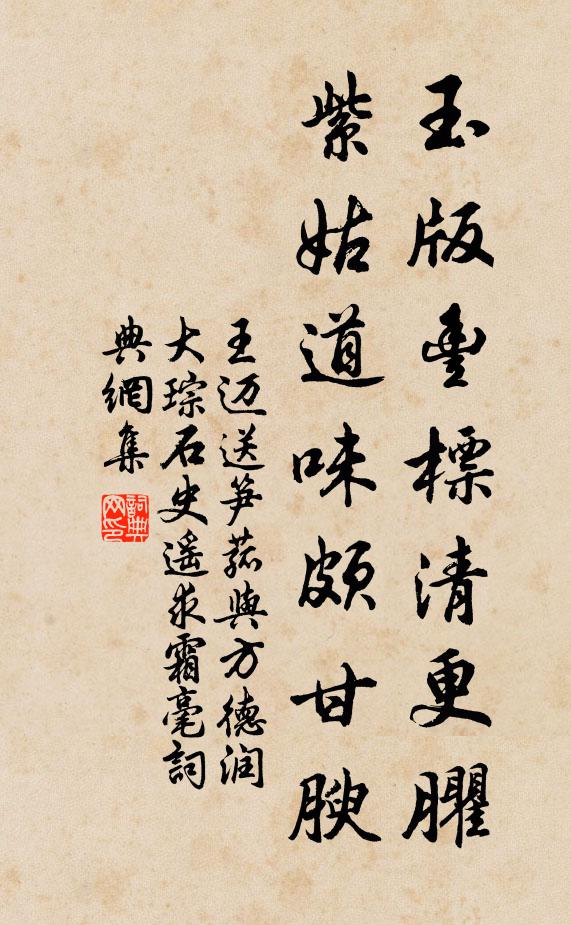 玉版豊標清更臞
紫姑道味頗甘腴
王迈送笋菇與方德润
大琮石史遥求霜毫詞
典網集
詞典
网印